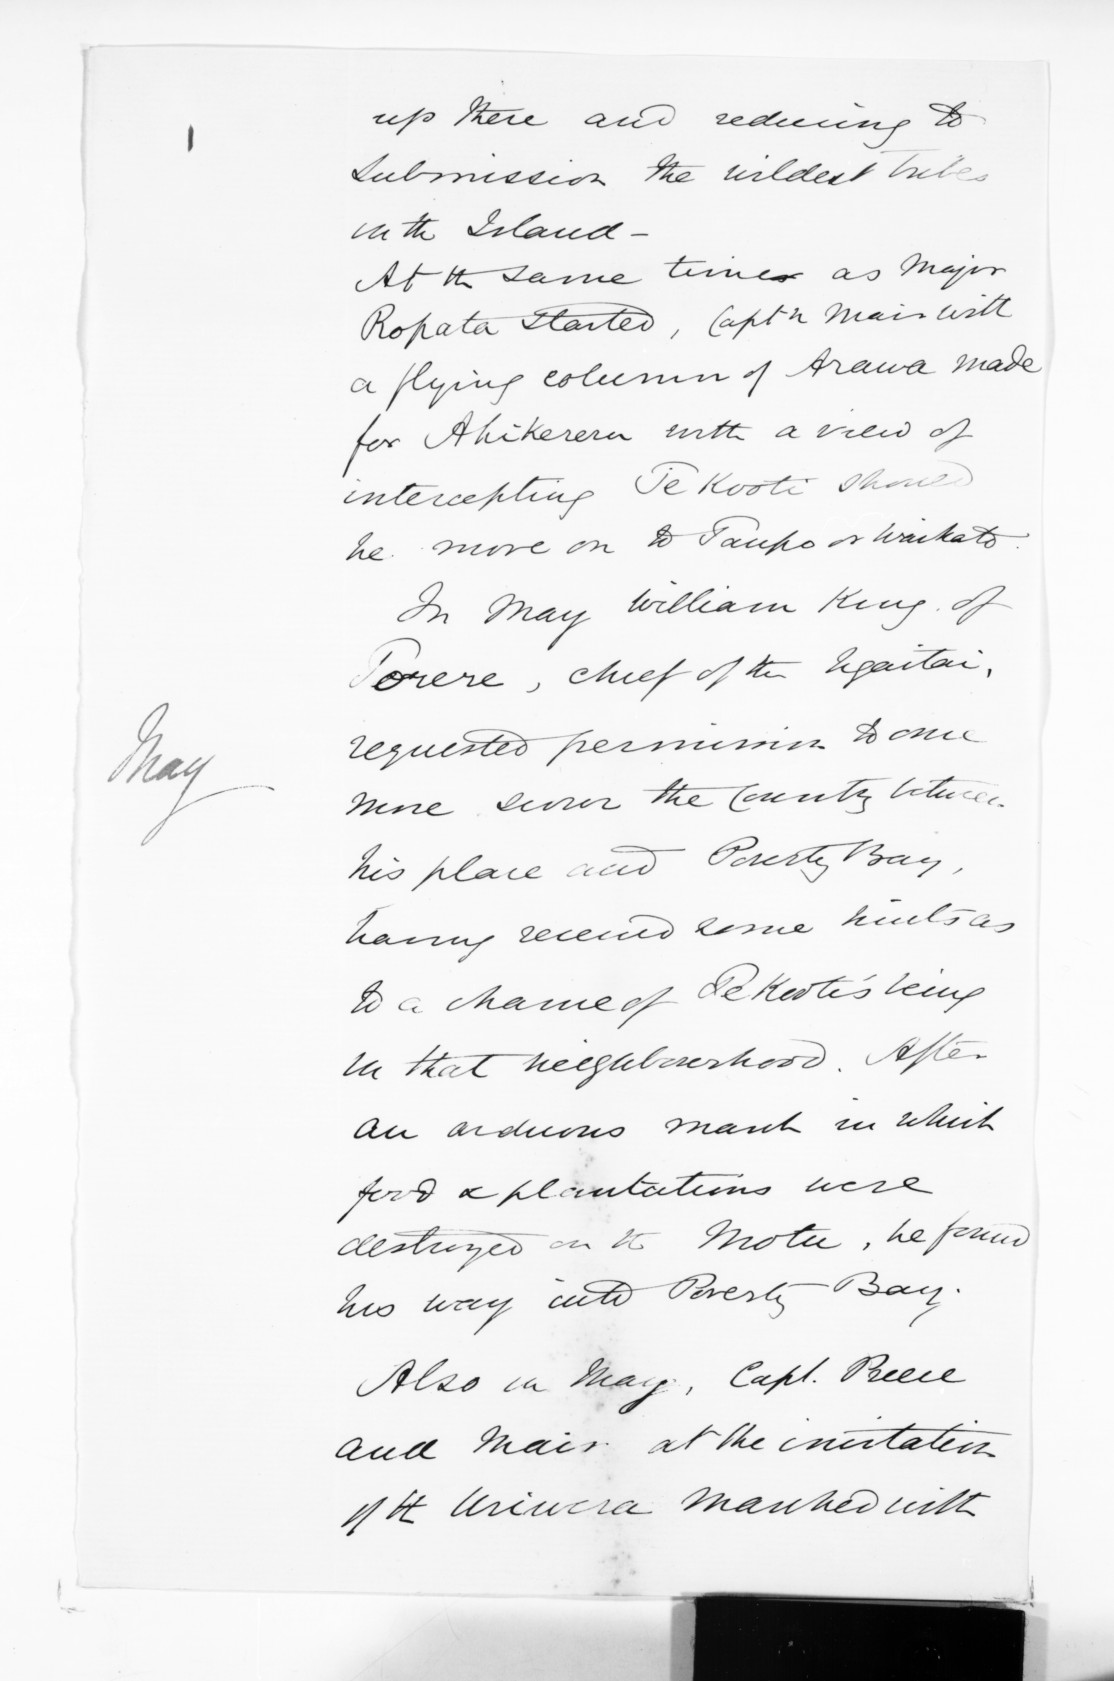 up there and reducing to
submission the wildest tribes
in the Island -
At the same time as Major
Ropata started, Captn Mair with
a flying column of Arawa made
for Ahikereru with a view of
intercepting Te Kooti should
he move on to Taupo or Waikato.
In May William King of
Torere, chief of the Ngaitai,
requested permission to once
May
more scour the Country between
his place and Poverty Bay,
having received some hints as
to a chance of Te Kooti's being
in that neighbourhood. After
an arduous march in which
food & plantations were
destroyed on the Motu, he found
his way into Poverty Bay.
Also in May, Capt. Preece
and Mair at the invitation
of the Uriwera marched with